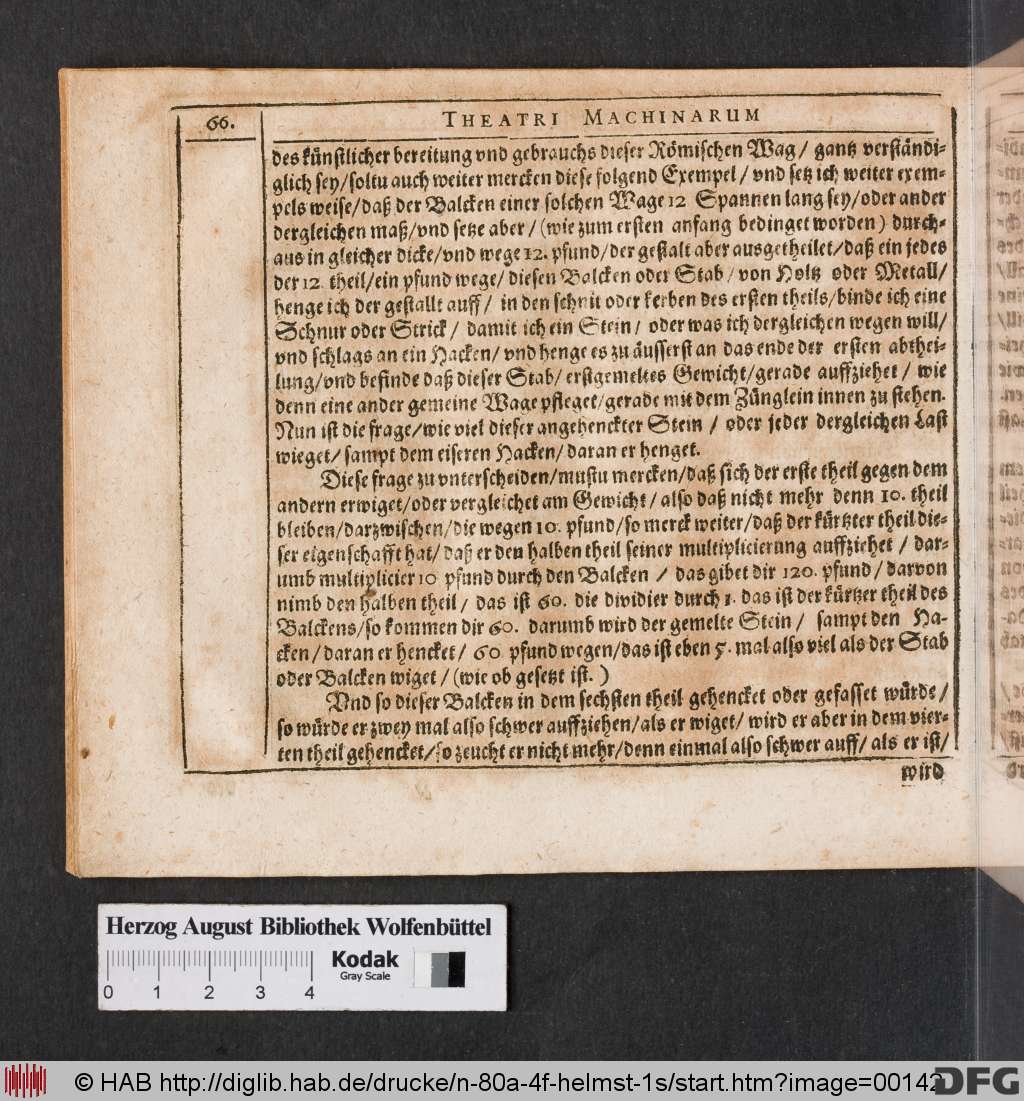 66.
THEATRI MACHINARUM
des künstlicher bereitung vnd gebrauchs dieser Römischen Wag / gantz verständi-
glich sey/soltu auch weiter mercken diese folgend Exempel / vnd setz ich weiter exem-
pels weise/daß der Balcken einer solchen Wage 12 Spannen lang sey/oder ander
dergleichen maß/vnd setze aber / (wie zum ersten anfang bedinget worden) durch-
aus in gleicher dicke/vnd wege 12. pfund/der gestalt aber ausgetheilet/daß ein jedes
der 12. theil/ein pfund wege/ diesen Balcken oder Stab / von Holtz oder Metall/
henge ich der gestallt auff / in den schnit oder kerben des ersten theils/binde ich eine
Schnur oder Strick / damit ich ein Stein / oder was ich dergleichen wegen will/
vnd schlags an ein Hacken/ vnd henge es zu äusserst an das ende der ersten abthei-
lung/vnd befinde daß dieser Stab/ erstgemeltes Gewicht/gerade auffziehet / wie
denn eine ander gemeine Wage pfleget/gerade mit dem Zünglein innen zu stehen.
Nun ist die frage/wie viel dieser angehenckter Stein / oder jeder dergleichen Last
wieget/ sampt dem eiseren Hacken/ daran er henget.
Diese frage zu vnterscheiden/mustu mercken/daß sich der erste theil gegen dem
andern erwiget/oder vergleichet am Gewicht / also daß nicht mehr denn 10. theil
bleiben/darzwischen/die wegen 10. pfund/so merck weiter/daß der kürtzter theil die-
ser eigenschafft hat/ daß er den halben theil seiner multiplicierung auffziehet / dar-
umb multiplicier 10 pfund durch den Balcken / das gibet dir 120. pfund / darvon
nimb den halben theil / das ist 60. die dividier durch 1. das ist der kürtzer theil des
Balckens/so kommen dir 60. darumb wird der gemelte Stein / sampt den Ha-
cken / daran er hencket / 60 pfund wegen/das ist eben 5. mal also viel als der Stab
oder Balcken wiget / (wie ob gesetzt ist. )
Vnd so dieser Balcken in dem sechsten theil gehencket oder gefasset würde /
so würde er zwey mal also schwer auffziehen/als er wiget/ wird er aber in dem vier-
ten theil gehencket/so zeucht er nicht mehr/denn einmal also schwer auff/ als er ist/
wird
Herzog August Bibliothek Wolfenbüttel
Kodak
Gray Scale
0 1 2 3 4
© HAB http://diglib.hab.de/drucke/n-80a-4f-helmst-1s/start.htm?image=00142
DFG